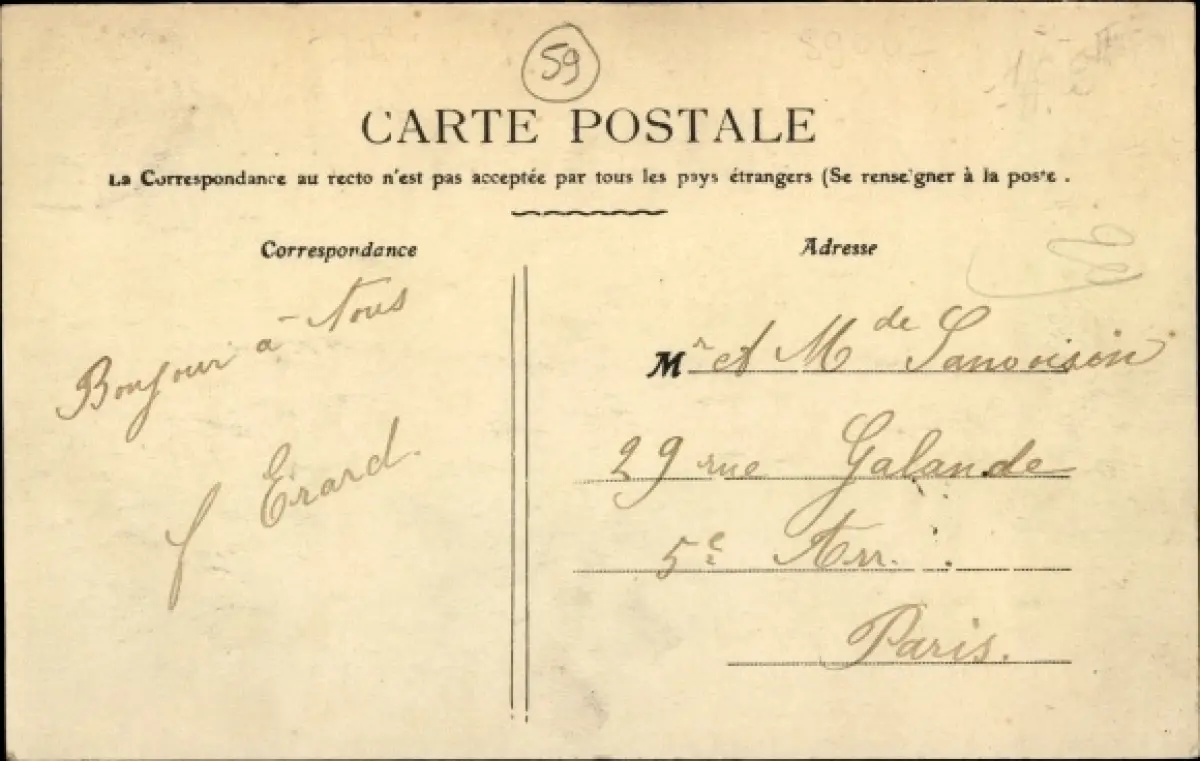 59
CARTE POSTALE
La Correspondance au recto n'est pas acceptée par tous les pays étrangers (Se renseigner à la poste.
Correspondance
Adresse
Bonjour à Tous
J Erard.
Mr et Mde Sanoisin
29 rue Galande
5e Arr.
Paris.